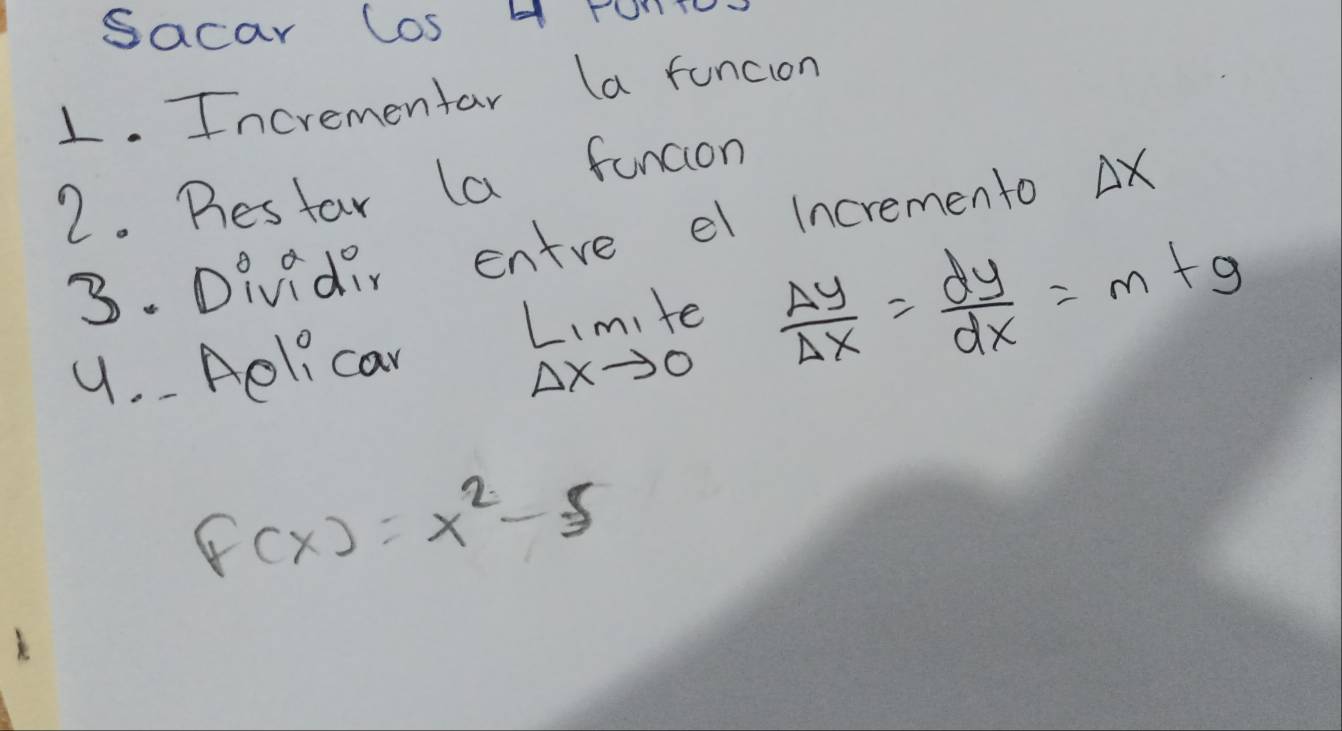 Sacar los 4 Puntos
1. Incrementar la funcion
2. Restar la funcion
3. Dividir entre el incremento ΔX
4.- Aplicar Limite Δy/Δx = dy/dx = mtg
Δx→0
F(x) = x² - 5